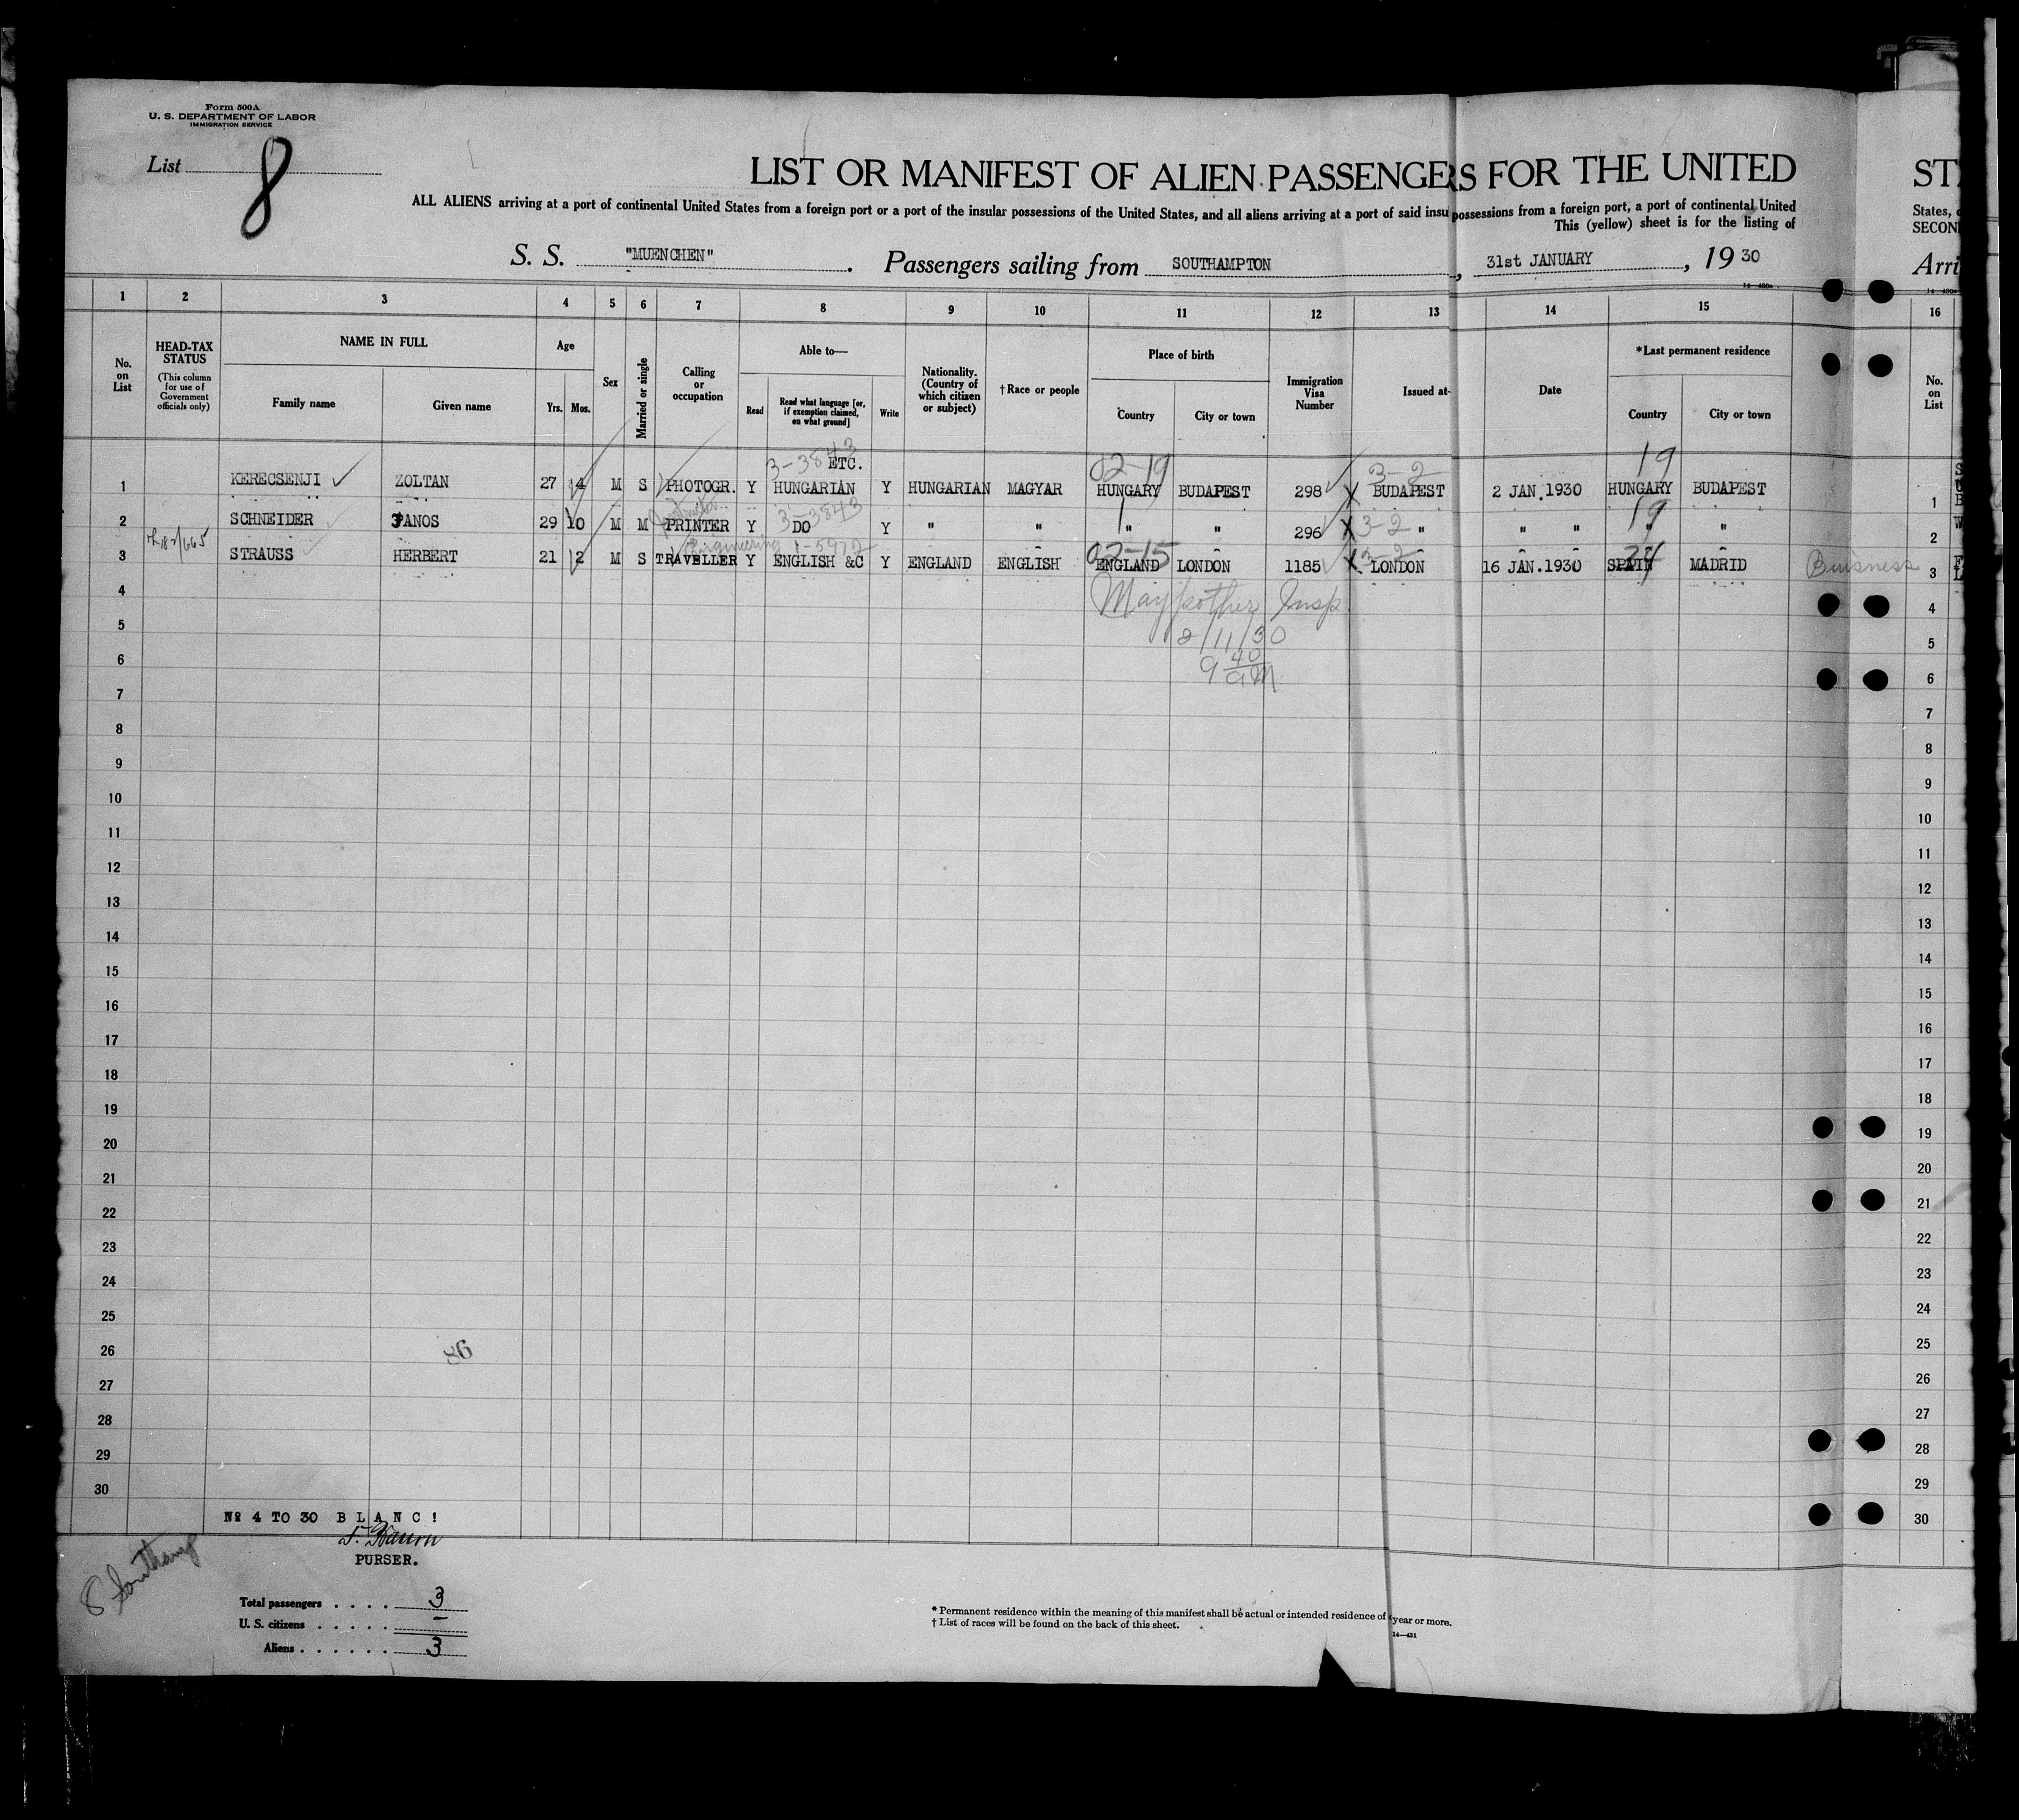 Form 500A
U. S. DEPARTMENT OF LABOR
IMMIGRATION SERVICE
List 8
LIST OR MANIFEST OF ALIEN PASSENGERS FOR THE UNITED
ST
ALL ALIENS arriving at a port of continental United States from a foreign port or a port of the insular possessions of the United States, and all aliens arriving at a port of said insu possessions from a foreign port, a port of continental United
States,
This (yellow) sheet is for the listing of
SECON
S. S. "MUENCHEN". Passengers sailing from SOUTHAMPTON, 31st JANUARY, 1930
Arri
1 2 3 4 5 6 7 8 9 10 11 12 13 14 15 16
No. on List
HEAD-TAX STATUS (This column for use of Government officials only)
NAME IN FULL
Family name Given name
Age
Yrs. Mos.
Sex
Married or single
Calling or occupation
Able to—
Read
Read what language [or, if exemption claimed, on what ground]
Write
Nationality. (Country of which citizen or subject)
† Race or people
Place of birth
Country City or town
Immigration Visa Number
Issued at-
Date
*Last permanent residence
Country City or town
No. on List
3-3843 ETC. 02-19 3-2 19
1 KERECSENJI ZOLTAN 27 4 M S PHOTOGR. Y HUNGARIAN Y HUNGARIAN MAGYAR HUNGARY BUDAPEST 298 X BUDAPEST 2 JAN.1930 HUNGARY BUDAPEST 1
3-3843 3-2 19
2 SCHNEIDER JANOS 29 10 M M PRINTER Y DO Y " " " " 296 X " " " " " 2
Engineering 02-15 3-2
3 STRAUSS HERBERT 21 2 M S TRAVELLER Y ENGLISH &C Y ENGLAND ENGLISH ENGLAND LONDON 1185 X LONDON 16 JAN.1930 SPAIN MADRID Buisness 3
4 Insp. 4
5 2/11/30 5
6 9 40 AM 6
7 7
8 8
9 9
10 10
11 11
12 12
13 13
14 14
15 15
16 16
17 17
18 18
19 19
20 20
21 21
22 22
23 23
24 24
25 25
26 86 26
27 27
28 28
29 29
30 30
№ 4 TO 30 B L A N C !
PURSER.
8 Southamp
Total passengers . . . . 3
U. S. citizens . . . . . –
Aliens . . . . . . 3
* Permanent residence within the meaning of this manifest shall be actual or intended residence of year or more.
† List of races will be found on the back of this sheet.
14—421